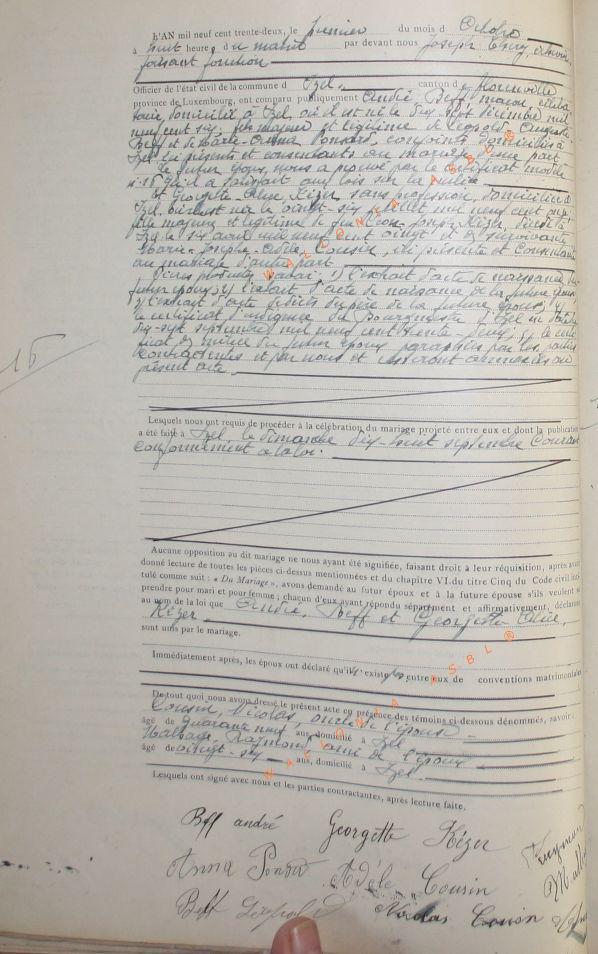 L'AN mil neuf cent trente-deux, le premier du mois d'Octobre
à huit heures du matin par devant nous Joseph Thiry, échevin
faisant fonction
Officier de l'état civil de la commune d'Izel, canton de Florenville
province de Luxembourg, ont comparu publiquement André Beff maçon, céliba
taire, domicilié à Izel, où il est né le dix sept décembre mil
neuf cent six, fils majeur et légitime de Léopold Auguste
Beff et de Marie-Anna Ponsard, conjoints domiciliés à
Izel ici présents et consentants au mariage d'une part
le futur époux nous a prouvé par le certificat modèle
n° 18 qu'il a satisfait aux lois sur la milice
Et Georgette Olive Kézer sans profession, domiciliée à
Izel, où elle est née le vingt-six mil neuf cent onze
fille majeure et légitime de feu Léon Joseph Kézer, décédé à
Izel le six août mil neuf cent vingt et la survivante
Marie-Joseph-Adèle Cousin, ici présente et consentante
au mariage d'autre part
Pièces produites 1) l'extrait d'acte de naissance du
futur époux; 2) l'extrait d'acte de naissance de la future épouse;
3) l'extrait d'acte de décès du père de la future épouse; 4)
le certificat d'indigence du Bourgmestre d'Izel en date du
dix-sept septembre mil neuf cent trente-deux; 5) le certi
ficat de milice du futur époux paraphés par les parties
contractantes et par nous et resteront annexés au
présent acte
15
Lesquels nous ont requis de procéder à la célébration du mariage projeté entre eux et dont la publication
a été faite à Izel, le dimanche dix-huit septembre courant
conformément à la loi.
Aucune opposition au dit mariage ne nous ayant été signifiée, faisant droit à leur réquisition, après avoir
donné lecture de toutes les pièces ci-dessus mentionnées et du chapitre VI du titre Cinq du Code civil inti
tulé comme suit : « Du Mariage », avons demandé au futur époux et à la future épouse s'ils veulent se
prendre pour mari et pour femme ; chacun d'eux ayant répondu séparément et affirmativement, déclarons
au nom de la loi que André, Beff et Georgette Olive,
Kézer
sont unis par le mariage.
Immédiatement après, les époux ont déclaré qu'il n'existe pas entre eux de conventions matrimoniales
De tout quoi nous avons dressé le présent acte en présence des témoins ci-dessous dénommés, savoir :
Cousin, Nicolas, oncle de l'épouse
âgé de quarante neuf ans, domicilié à Izel
Raymond, ami de l'époux
âgé de vingt-six ans, domicilié à Izel
Lesquels ont signé avec nous et les parties contractantes, après lecture faite.
Beff andré Georgette Kézer
Anna Adèle Cousin
Beff Léopold Nicolas Cousin
Raymond
WALLONIA ASBL ®
WALLONIA ASBL ®